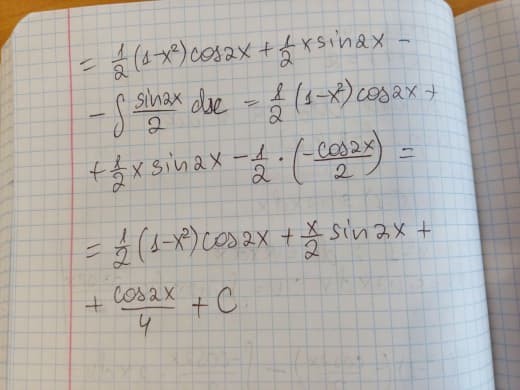 = 1/2 (1-x²) cos2x + 1/2 x sin2x -
- ∫ sin2x/2 dx = 1/2 (1-x²) cos2x +
+ 1/2 x sin2x - 1/2 · (-cos2x/2) =
= 1/2 (1-x²) cos2x + x/2 sin2x +
+ cos2x/4 + C